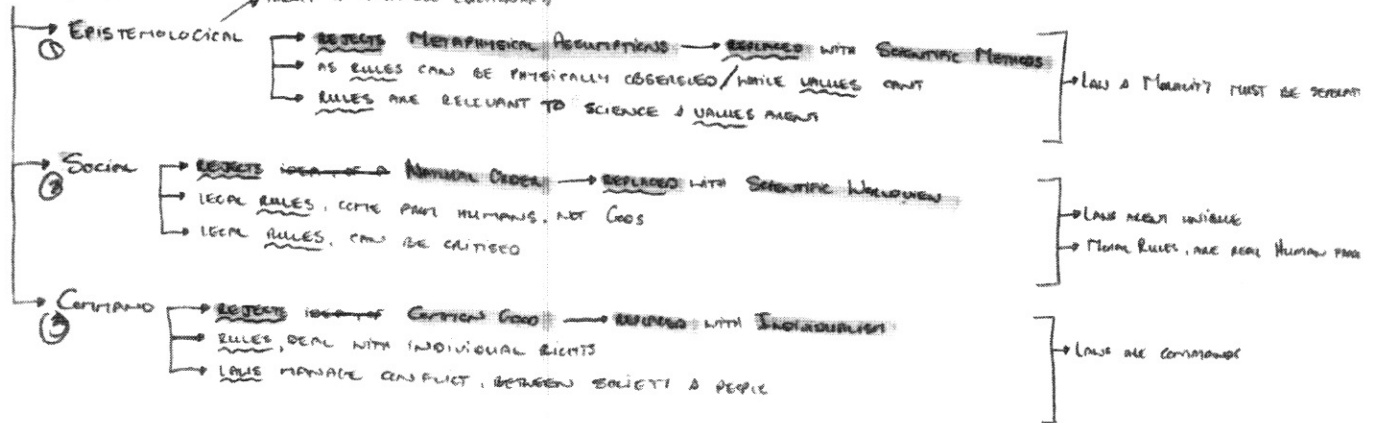 ① EPISTEMOLOGICAL
REJECTS METAPHYSICAL ASSUMPTIONS → REPLACED WITH SCIENTIFIC METHODS
AS RULES CAN BE PHYSICALLY OBSERVED/WHILE VALUES CANT
RULES ARE RELEVANT TO SCIENCE & VALUES ARENT
LAW & MORALITY MUST BE
② SOCIAL
REJECTS IDEA OF A NATURAL ORDER → REPLACED WITH SCIENTIFIC WORLDVIEW
LEGAL RULES, COME FROM HUMANS, NOT GODS
LEGAL RULES, CAN BE CRITISED
LAWS ARENT UNIQUE
MORAL RULES, ARE REAL HUMAN
③ COMMAND
REJECTS IDEA OF COMMON GOOD → REPLACED WITH INDIVIDUALISM
RULES, DEAL WITH INDIVIDUAL RIGHTS
LAWS MANAGE CONFLICT, BETWEEN SOCIETY & PEOPLE
LAWS ARE COMMANDS